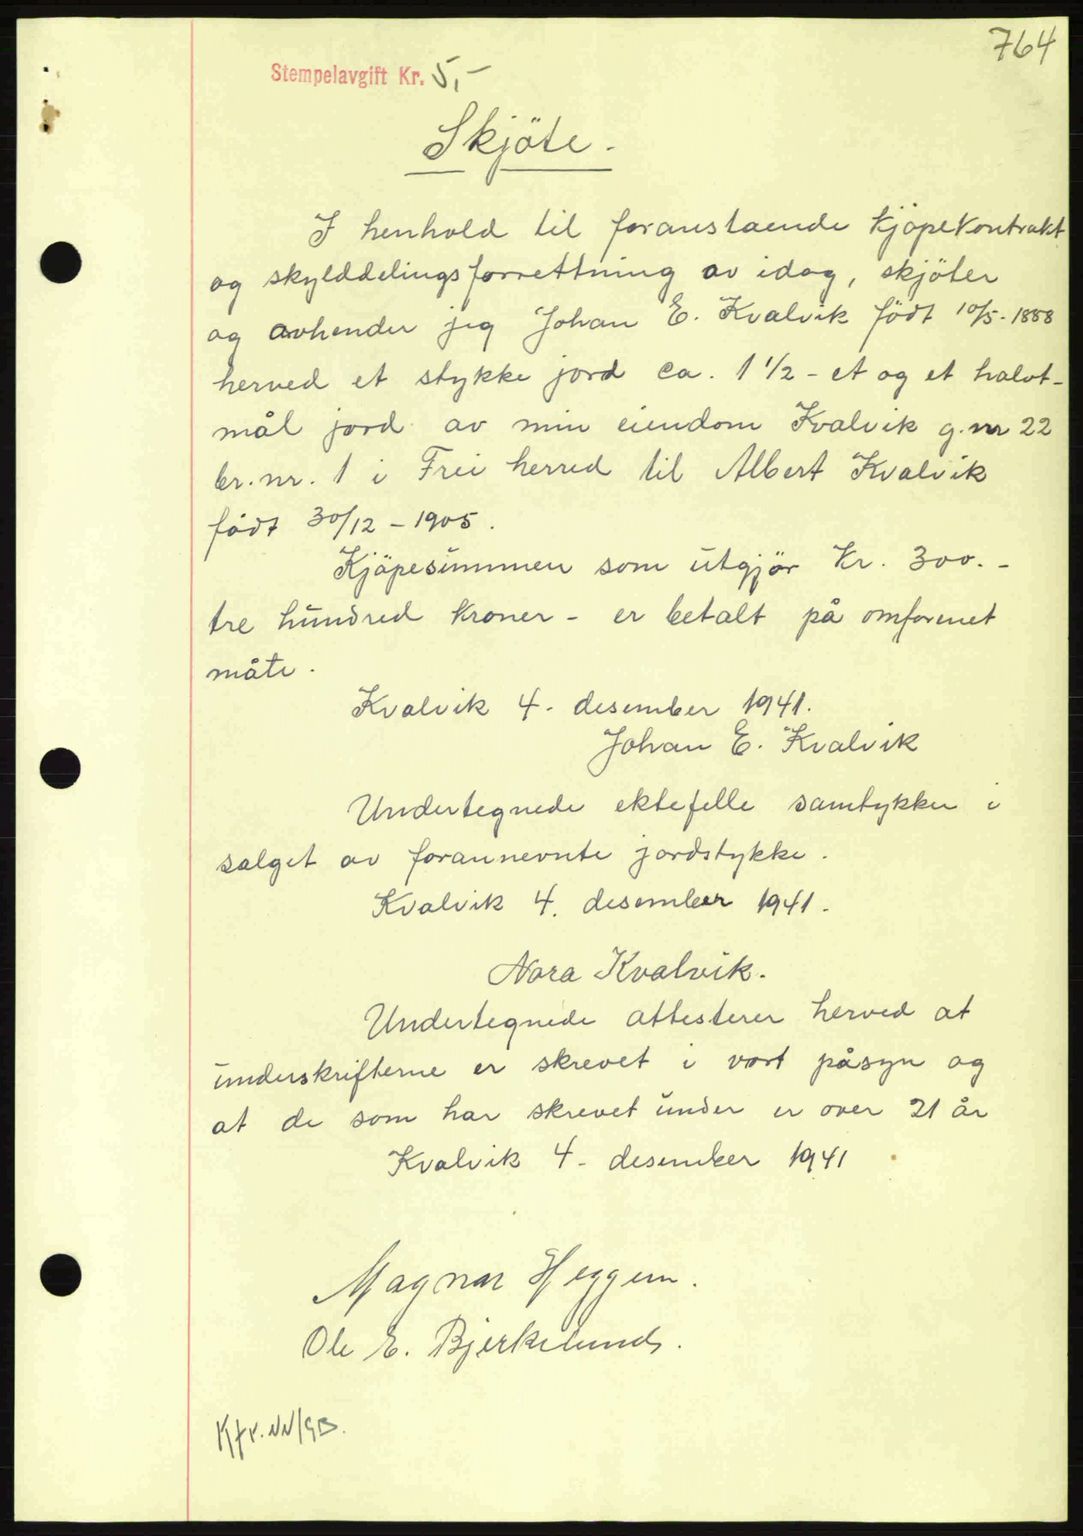 764
Stempelavgift Kr. 5,-
Skjöte.
I henhold til foranstaende kjöpekontrakt
og skylddelingsforrettning av idag, skjöter
og avhender jeg Johan E. Kvalvik födt 10/5-1888
herved et stykke jord ca. 1 1/2 - et og et halvt-
mål jord av min eiendom Kvalvik g.nr 22
br.nr. 1 i Frei herred til Albert Kvalvik
födt 30/12-1905.
Kjöpesummen som utgjör Kr. 300.-
tre hundred kroner - er betalt på omforenet
måte.
Kvalvik 4. desember 1941.
Johan E. Kvalvik
Undertegnede ektefelle samtykker i
salget av forannevnte jordstykke.
Kvalvik 4. desember 1941.
Nora Kvalvik.
Undertegnede attesterer herved at
underskrifterne er skrevet i vort påsyn og
at de som har skrevet under er over 21 år
Kvalvik 4. desember 1941
Magnar Heggem.
Ole E. Bjerkelund.
Kfr. NN/GB.